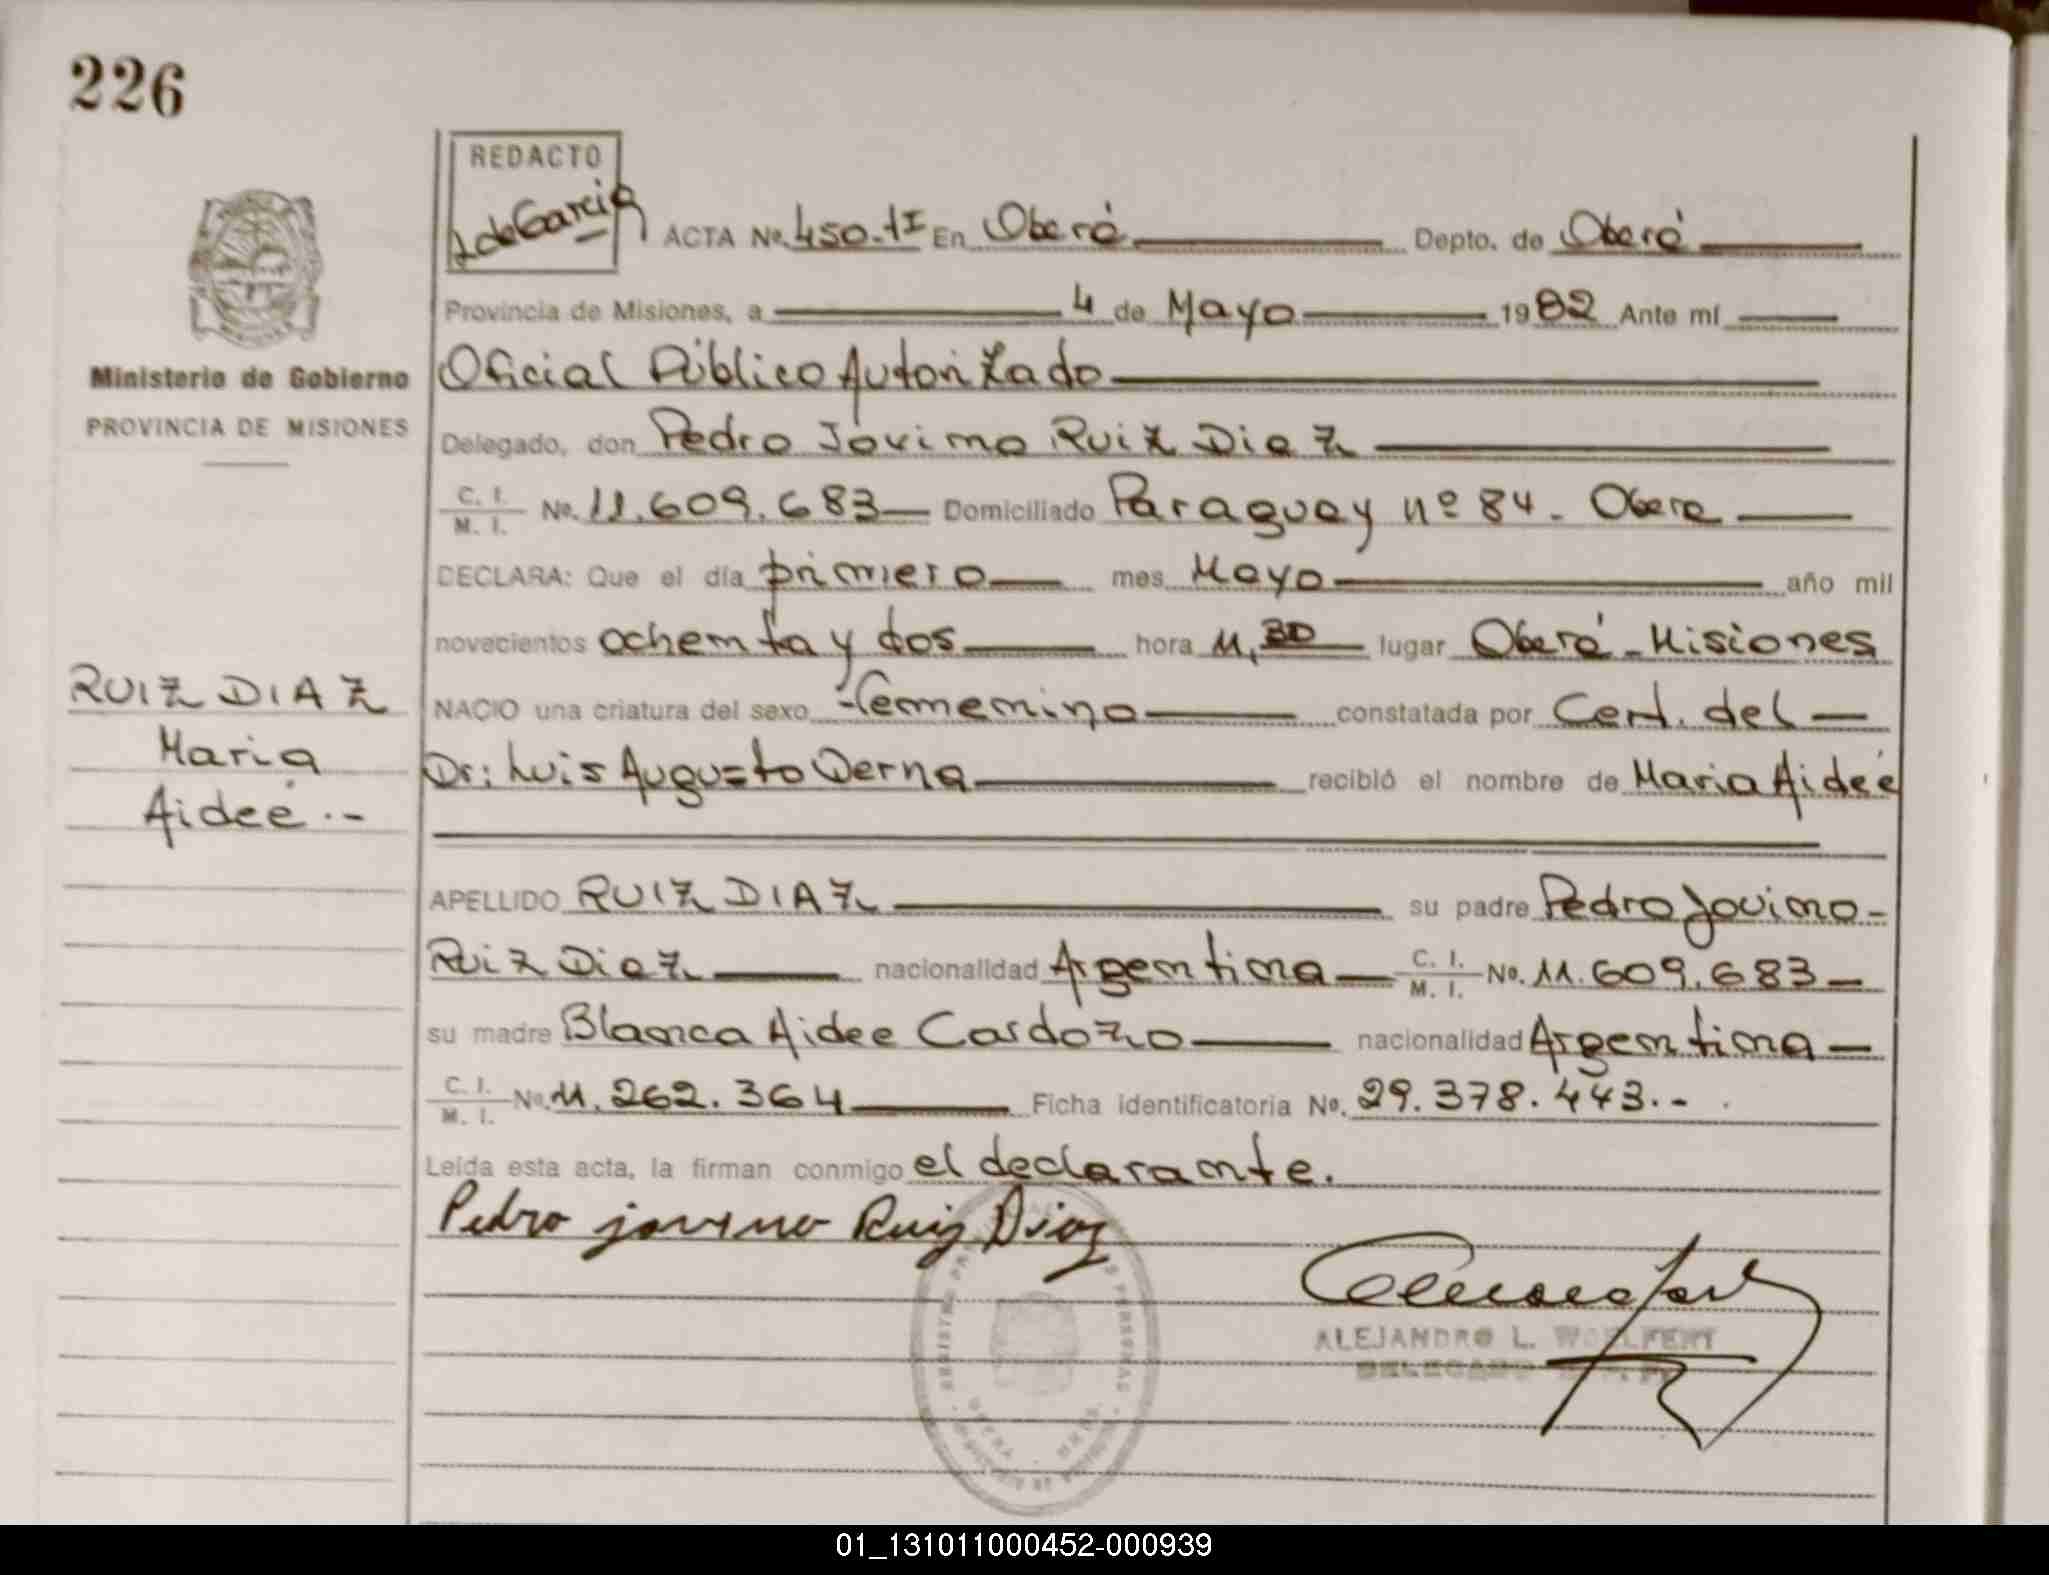 226
REDACTO
L de Garcia
ACTA No. 450. tI En Oberá Depto. de Oberá
Provincia de Misiones, a 4 de Mayo 1982 Ante mí
Ministerio de Gobierno
PROVINCIA DE MISIONES
Oficial Público Autorizado
Delegado, don Pedro Jovino Ruiz Diaz
C. I. / M. I. No. 11.609.683 Domiciliado Paraguay nº 84 - Obera
DECLARA: Que el día primero mes Mayo año mil
novecientos ochenta y dos hora 11,30 lugar Oberá - Misiones
RUIZ DIAZ
Maria
Aideé.-
NACIO una criatura del sexo femenino constatada por Cert. del
Dr: Luis Augusto Derna recibió el nombre de Maria Aideé
APELLIDO RUIZ DIAZ su padre Pedro Jovino
Ruiz Diaz nacionalidad Argentina C. I. / M. I. No. 11.609.683
su madre Blanca Aidee Cardozo nacionalidad Argentina
C. I. / M. I. No. 11.262.364 Ficha identificatoria No. 29.378.443.-
Leída esta acta, la firman conmigo el declarante.
Pedro jovino Ruiz Diaz
ALEJANDRO L. WOELFERT
DELEGADO
01_131011000452-000939